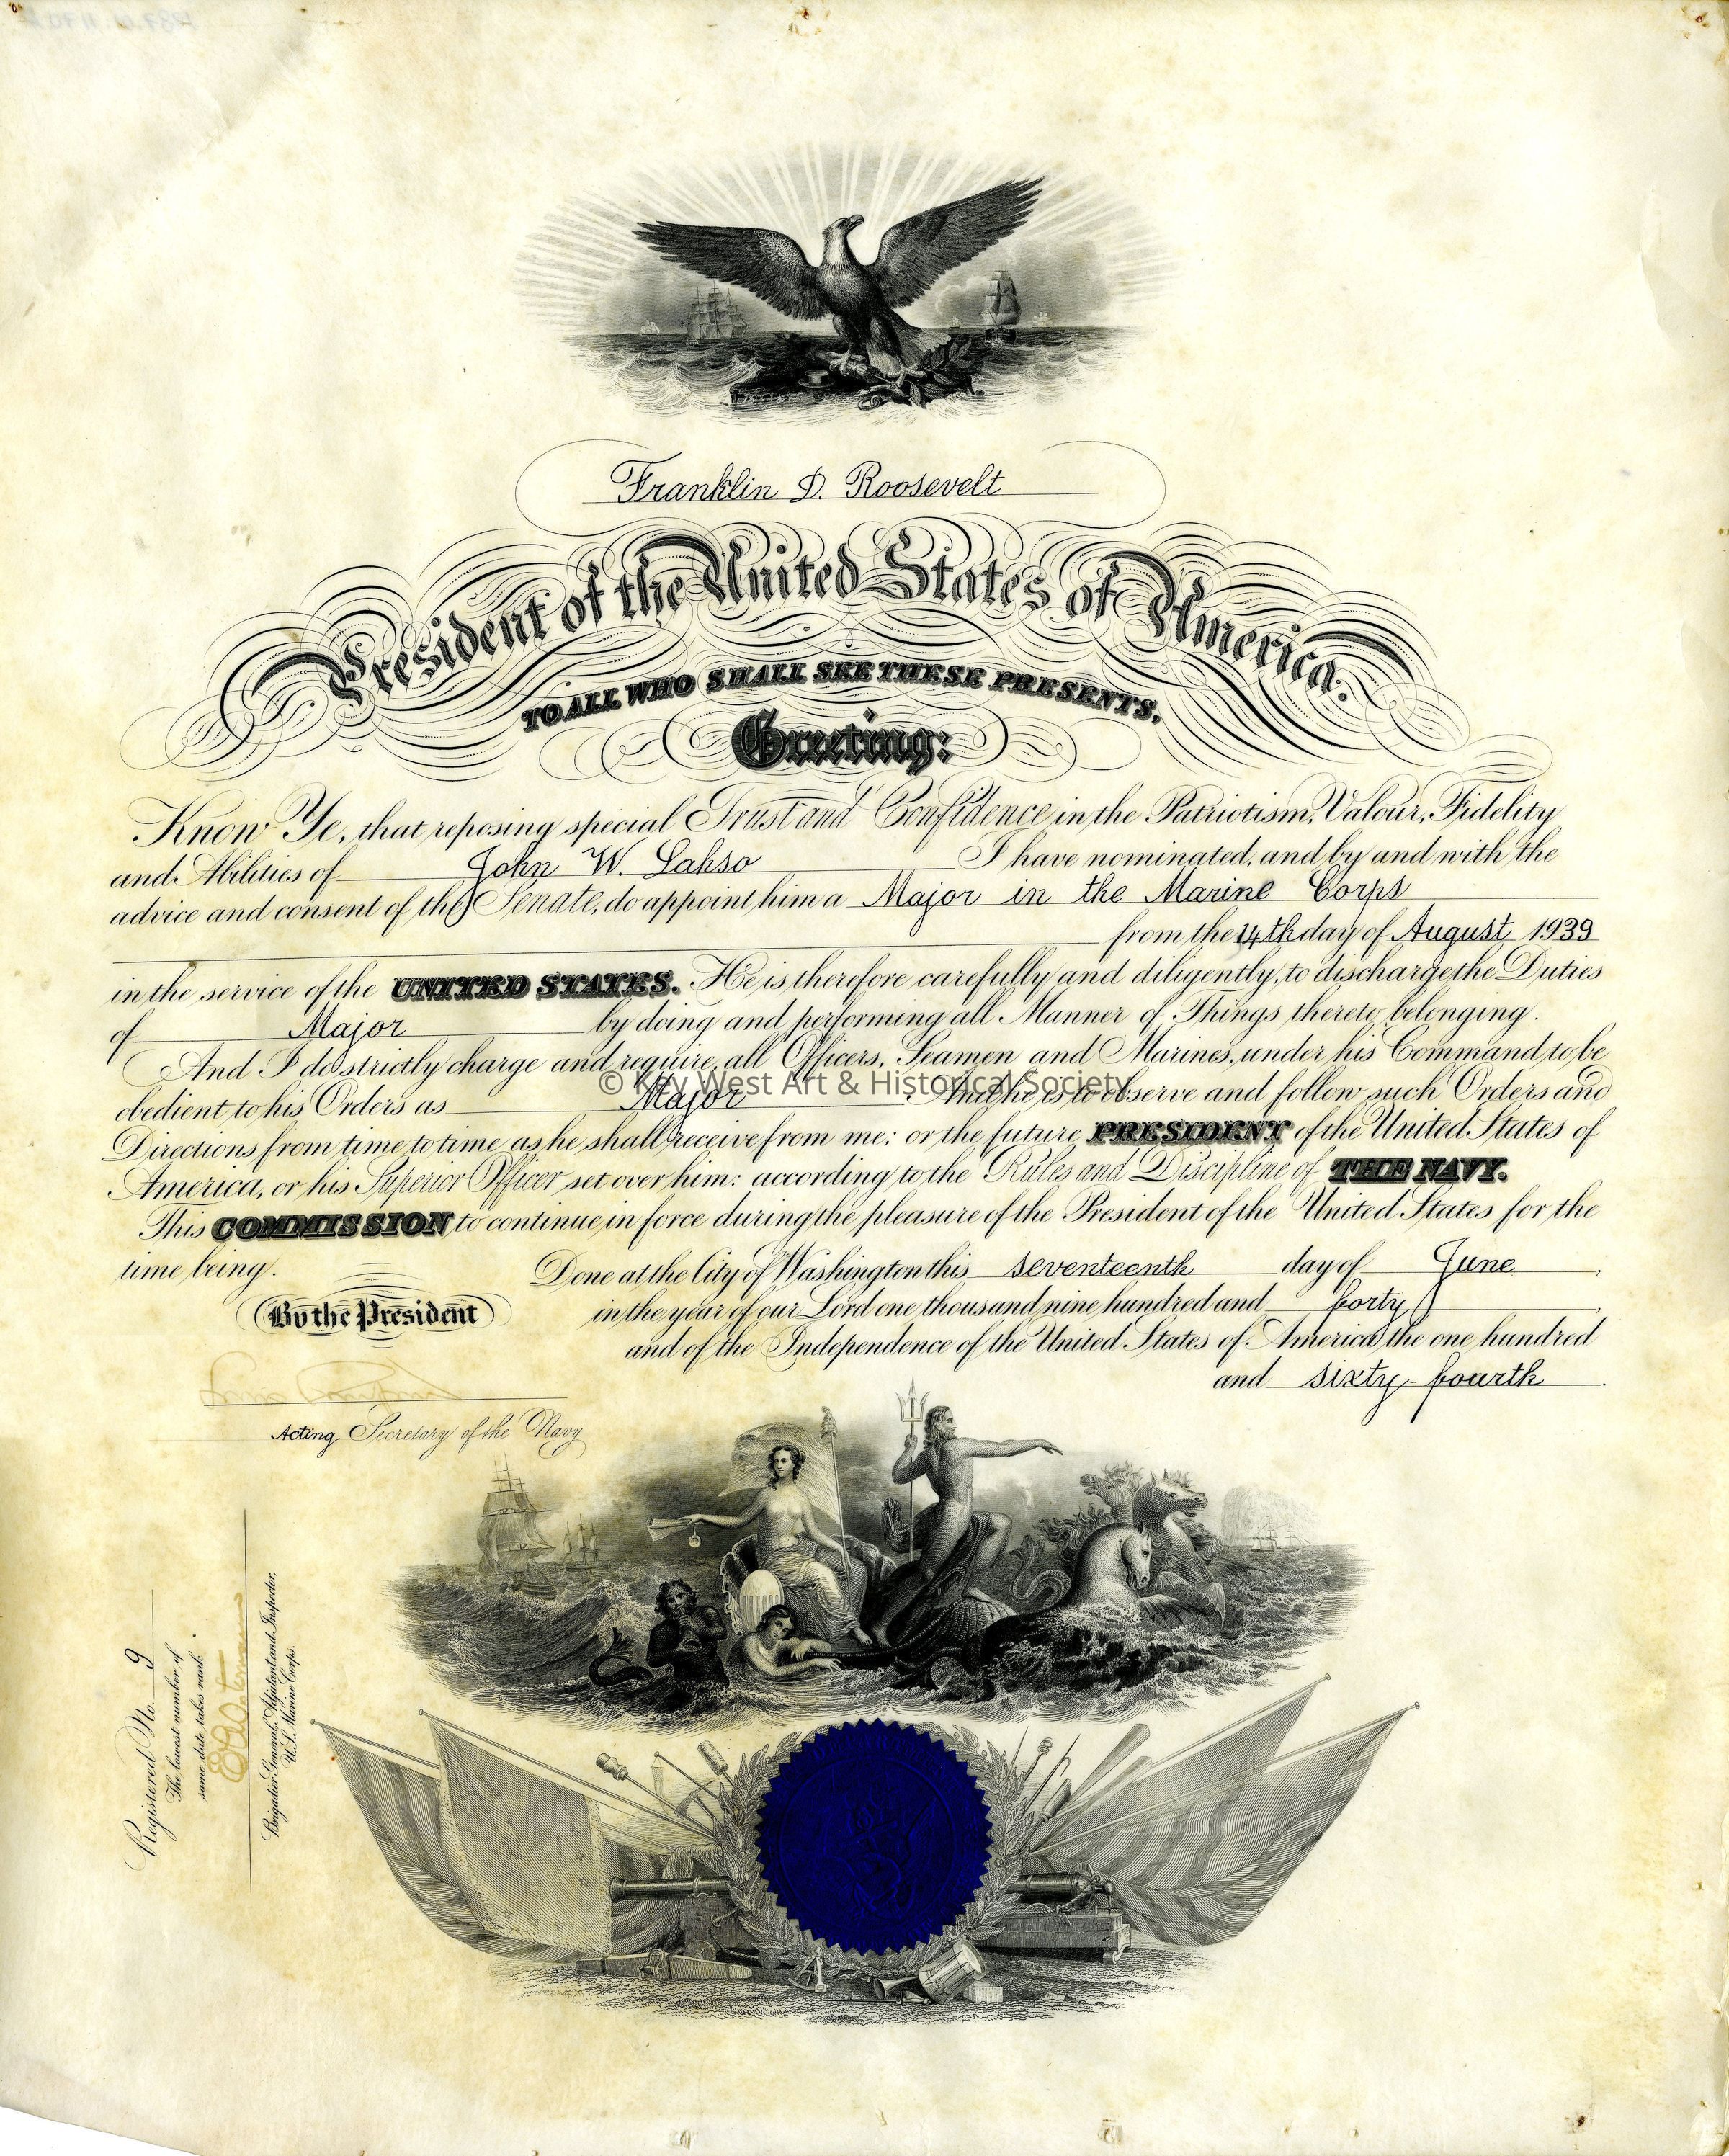 Franklin D. Roosevelt
President of the United States of America.
TO ALL WHO SHALL SEE THESE PRESENTS,
Greeting:
Know Ye, that reposing special Trust and Confidence in the Patriotism, Valour, Fidelity
and Abilities of John W. Lakso I have nominated, and by and with the
advice and consent of the Senate, do appoint him a Major in the Marine Corps
from the 14th day of August 1939
in the service of the UNITED STATES. He is therefore carefully and diligently, to discharge the Duties
of Major by doing and performing all Manner of Things thereto belonging.
And I do strictly charge and require, all Officers, Seamen and Marines, under his Command, to be
© Key West Art & Historical Society
obedient to his Orders as Major . And he is to observe and follow such Orders and
Directions from time to time as he shall receive from me; or the future PRESIDENT of the United States of
America, or his Superior Officer set over him: according to the Rules and Discipline of THE NAVY.
This COMMISSION to continue in force during the pleasure of the President of the United States for the
time being.
Done at the City of Washington this seventeenth day of June ,
in the year of our Lord one thousand nine hundred and forty ,
By the President
and of the Independence of the United States of America the one hundred
and sixty-fourth .
Acting Secretary of the Navy
Registered No. 9
The lowest number of
same date takes rank.
Brigadier General, Adjutant and Inspector,
U.S. Marine Corps.